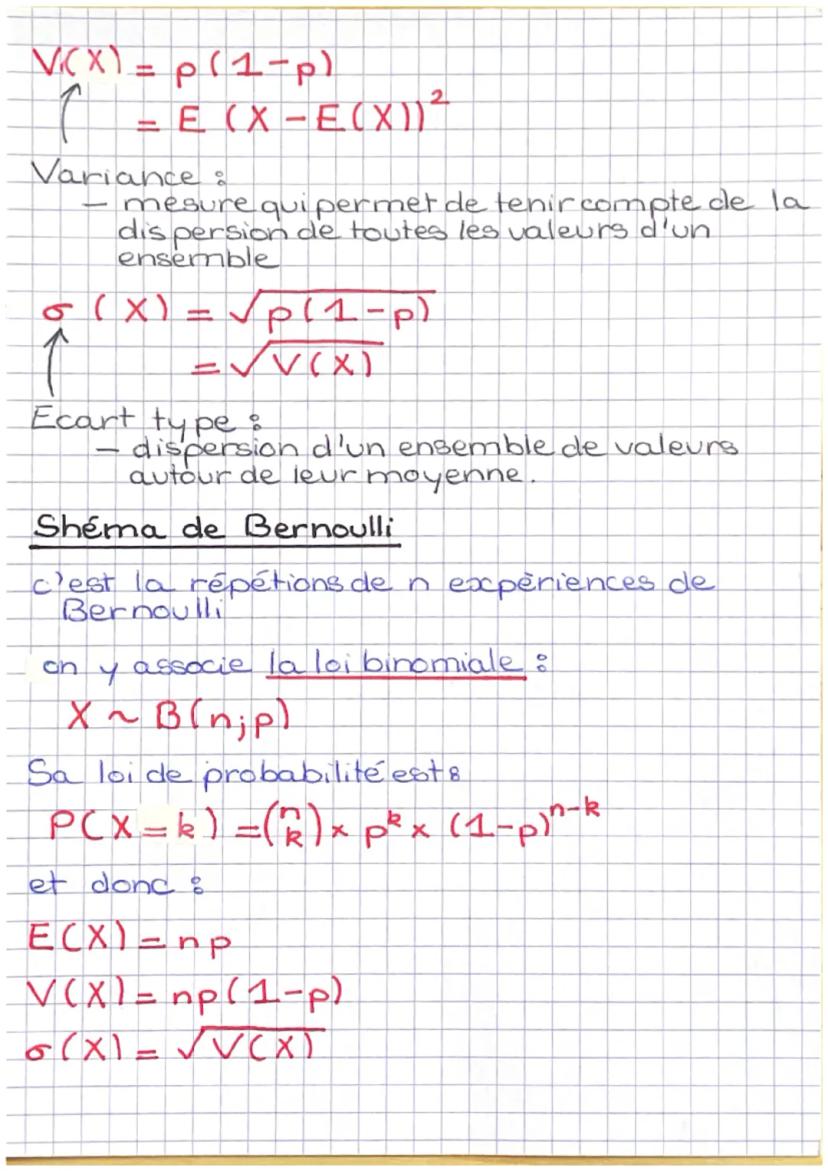 V(X) = p(1-p)
= E (X - E(X))²
Variance :
- mesure qui permet de tenir compte de la
dispersion de toutes les valeurs d'un
ensemble
σ (X) = √p(1-p)
= √V(X)
Ecart type :
- dispersion d'un ensemble de valeurs
autour de leur moyenne.
Shéma de Bernoulli
c'est la répétions de n expèriences de
Bernoulli
on y associe la loi binomiale :
X ~ B(n;p)
Sa loi de probabilité est :
P(X=k) = (n k) × p^k × (1-p)^n-k
et donc :
E(X) = np
V(X) = np(1-p)
σ(X) = √V(X)